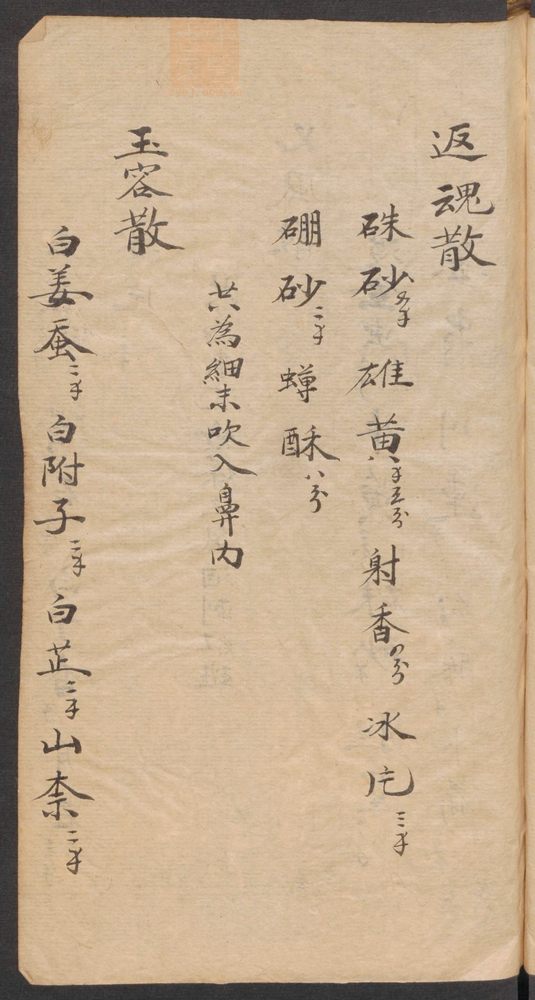 返魂散
硃砂五千雄黄八千五分射香四分冰片三千
硼砂二千蟬酥八分
共為細末吹入鼻内
玉容散
白姜蚕二千白附子二千白芷二千山柰二千